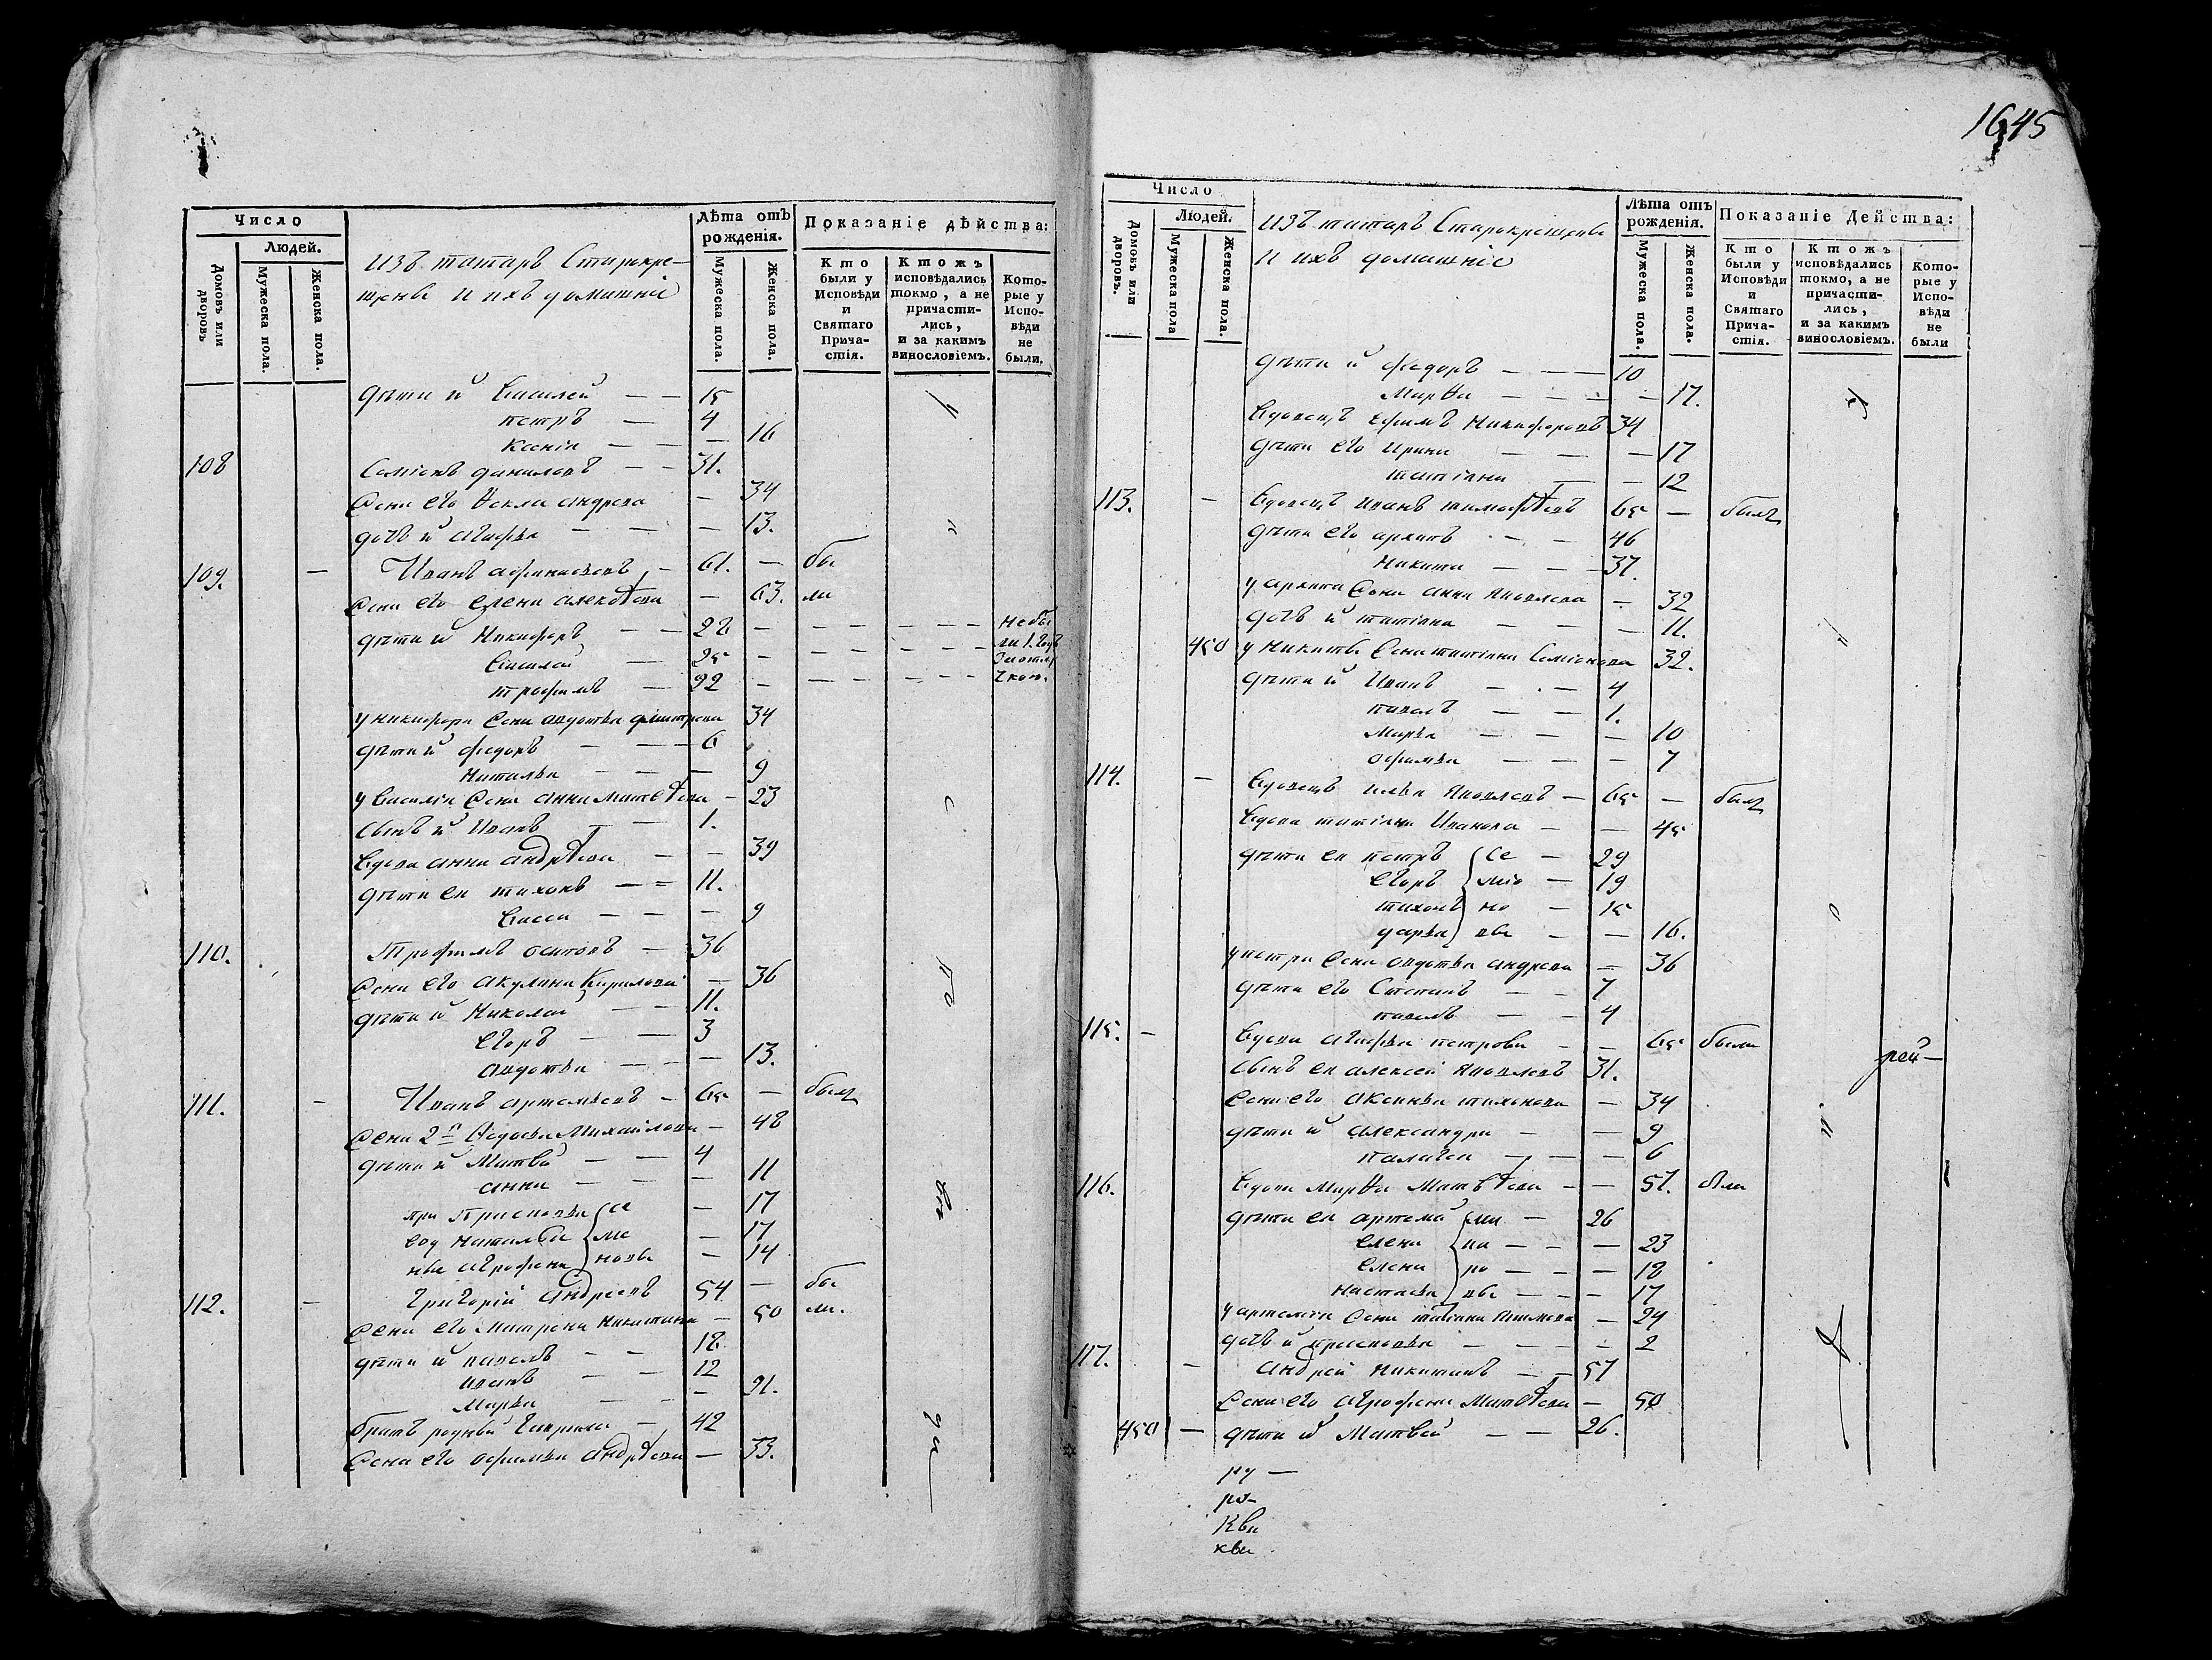 1645
Число
Людей.
Домовъ или дворовъ
Мужеска пола.
Женска пола.
Изъ татаръ Старокре-
щены и ихъ домашніе
Лѣта отъ рожденія.
Мужеска пола.
Женска пола.
Показаніе дѣйства:
Кто были у Исповѣди и Святаго Прича-стія.
Ктожъ исповѣдались токмо, а не причасти-лись, и за какимъ винословіемъ.
Кото-рые у Испо-вѣди не были.
дѣти и҃ Василей — — 15
петръ — 4
Ксенія — — — 16
108 Семіонъ даниловъ — — 31.
Жена его Ѳекла андреева — 34
дочь и҃ агафья — — — 13.
109. — Иванъ афанасьевъ — 61. — бы
Жена его елена алексѣева — 63. ли
дѣти и҃ Никифоръ — — 28 — — — — — — не бы
Василей — 25 — — — — — —
трофимъ — 22 — — — — — —
у никифора Жена авдотья дмитреева 34
дѣти и҃ федоръ — — 6
наталья — — — 9
у василія Жена анна матвѣева — 23
сынъ и҃ Иванъ — — 1.
вдова анна андрѣева — — 39
дѣти ея тихонъ — = 11.
васса — — — 9
110. Трофимъ осиповъ — 36
Жена его акулина Кирилова — 36
дѣти и҃ Николай — — 11.
егоръ — — 3
авдотья — — — 13.
111. — Иванъ артемьевъ — 65 — былъ
Жена 2я Ѳедосья Михайлова — 48
дѣти и҃ Матвѣй — — 4
анна — — — 11
при Присковья се — 17
вод наталья ме — 17
ные аграфена новы — 14
112. — Григорій Андреевъ 54 — бы
Жена его Матрена Никитина — 50 ли.
дѣти и҃ павелъ — — 18
иванъ — — 12
Марья — — — 21.
братъ родный Гаврила — 42
Жена его офимья андрѣева — 33.
по
да
Число
Людей.
Домовъ или дворовъ.
Мужеска пола
Женска пола.
Изъ татаръ Старокрещены
и ихъ домашніе
Лѣта отъ рожденія.
Мужеска пола.
Женска пола.
Показаніе Действа:
Кто были у Исповѣди и Святаго Прича-стія.
Ктожъ исповѣдались токмо, а не причасти-лись, и за какимъ винословіемъ.
Кото-рые у Испо-вѣди не были
дѣти и҃ федоръ — — — 10
Марѳа — — — — 17.
Вдовецъ Ефимъ Никифоровъ 34
дѣти его ирина — — — 17
татіяна — — 12
113. — Вдовецъ иванъ тимофѣевъ 65 — былъ
дѣти его архипъ — — 46
Никита — — — 37.
у архипа Жена анна яковлева — 32
дочь и҃ татіяна — — — 11.
450 у никиты Жена татіяна Семіонова 32.
дѣти и҃ Иванъ — — 4
павелъ — — 1.
Марья — — — 10
офимья — — — 7
114. — Вдовецъ илья яковлевъ — 65 — былъ
Вдова татіяна Иванова — — 45
дѣти ея петръ се — 29
егоръ міо — 19
тихонъ но — 15
дарья вы — — 16.
у петра Жена авдотья андреева — 36
дѣти его Степанъ — — 7
павелъ — — 4
115. — Вдова агафья петрова — — 65 была
сынъ ея алексей яковлевъ 31.
Жена его аксинья тихонова — 34
дѣти и҃ александра — — 9
палагея — — — 6
116. Вдова Марѳа Матвѣева — — 51. была
дѣти ея артемій — 26
елена — — — 23
елена — — — 18
настасья — — — 17
у артемія Жена татіяна — 24
дочь и҃ присковья — — — — 2
117. — Андрей Никитинъ — — 57
Жена его аграфена Матвѣева — 50
450 — дѣти и҃ Матвѣй — — 26.
рей —
ру —
ро-